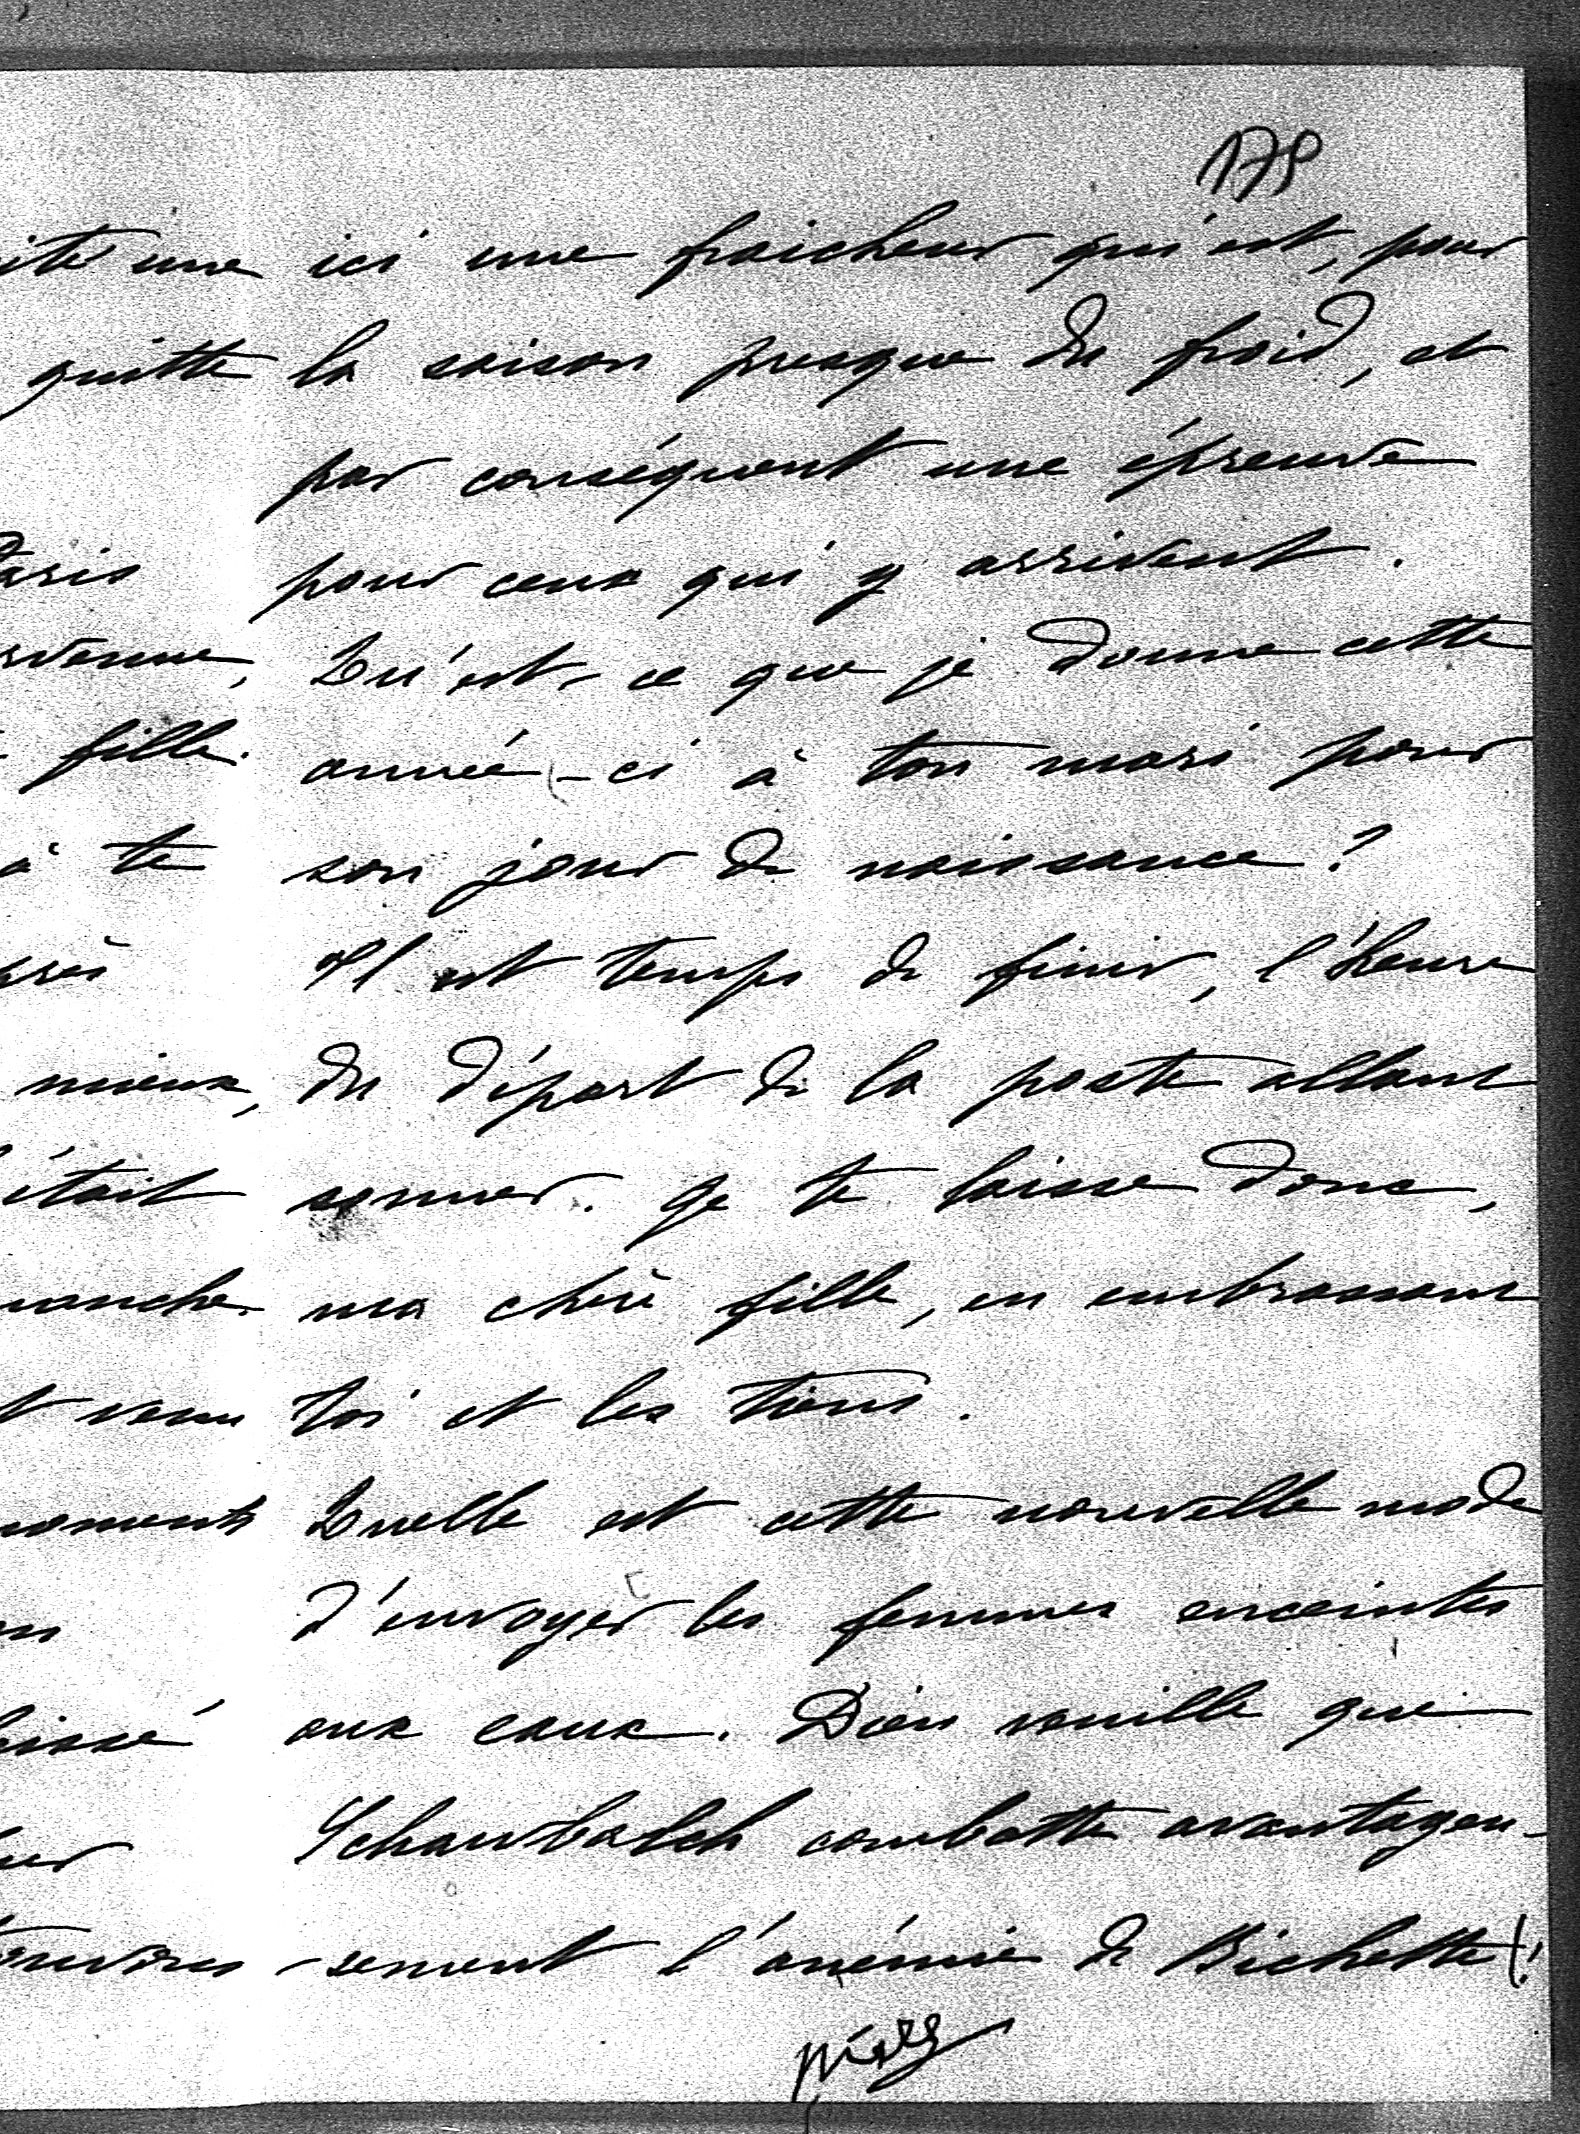 178
ici une fraicheur qui est, pour
la saison presque du froid, et
par conséquent une épreuve
pour ceux qui y arrivent.
Qu'est-ce que je donne cette
année-ci à ton mari pour
son jour de naissance?
Il est temps de finir, l'heure
du départ de la poste allant
sonner. Je te laisse donc,
ma chère fille, en embrassant
toi et les tiens.
Quelle est cette nouvelle mode
d'envoyer les femmes enceintes
aux eaux. Dieu veuille que
Schawbalch combatte avantageu-
-sement l'anémie de Bichette!
une
quitte
fille.
à te
mieux,
était
venu